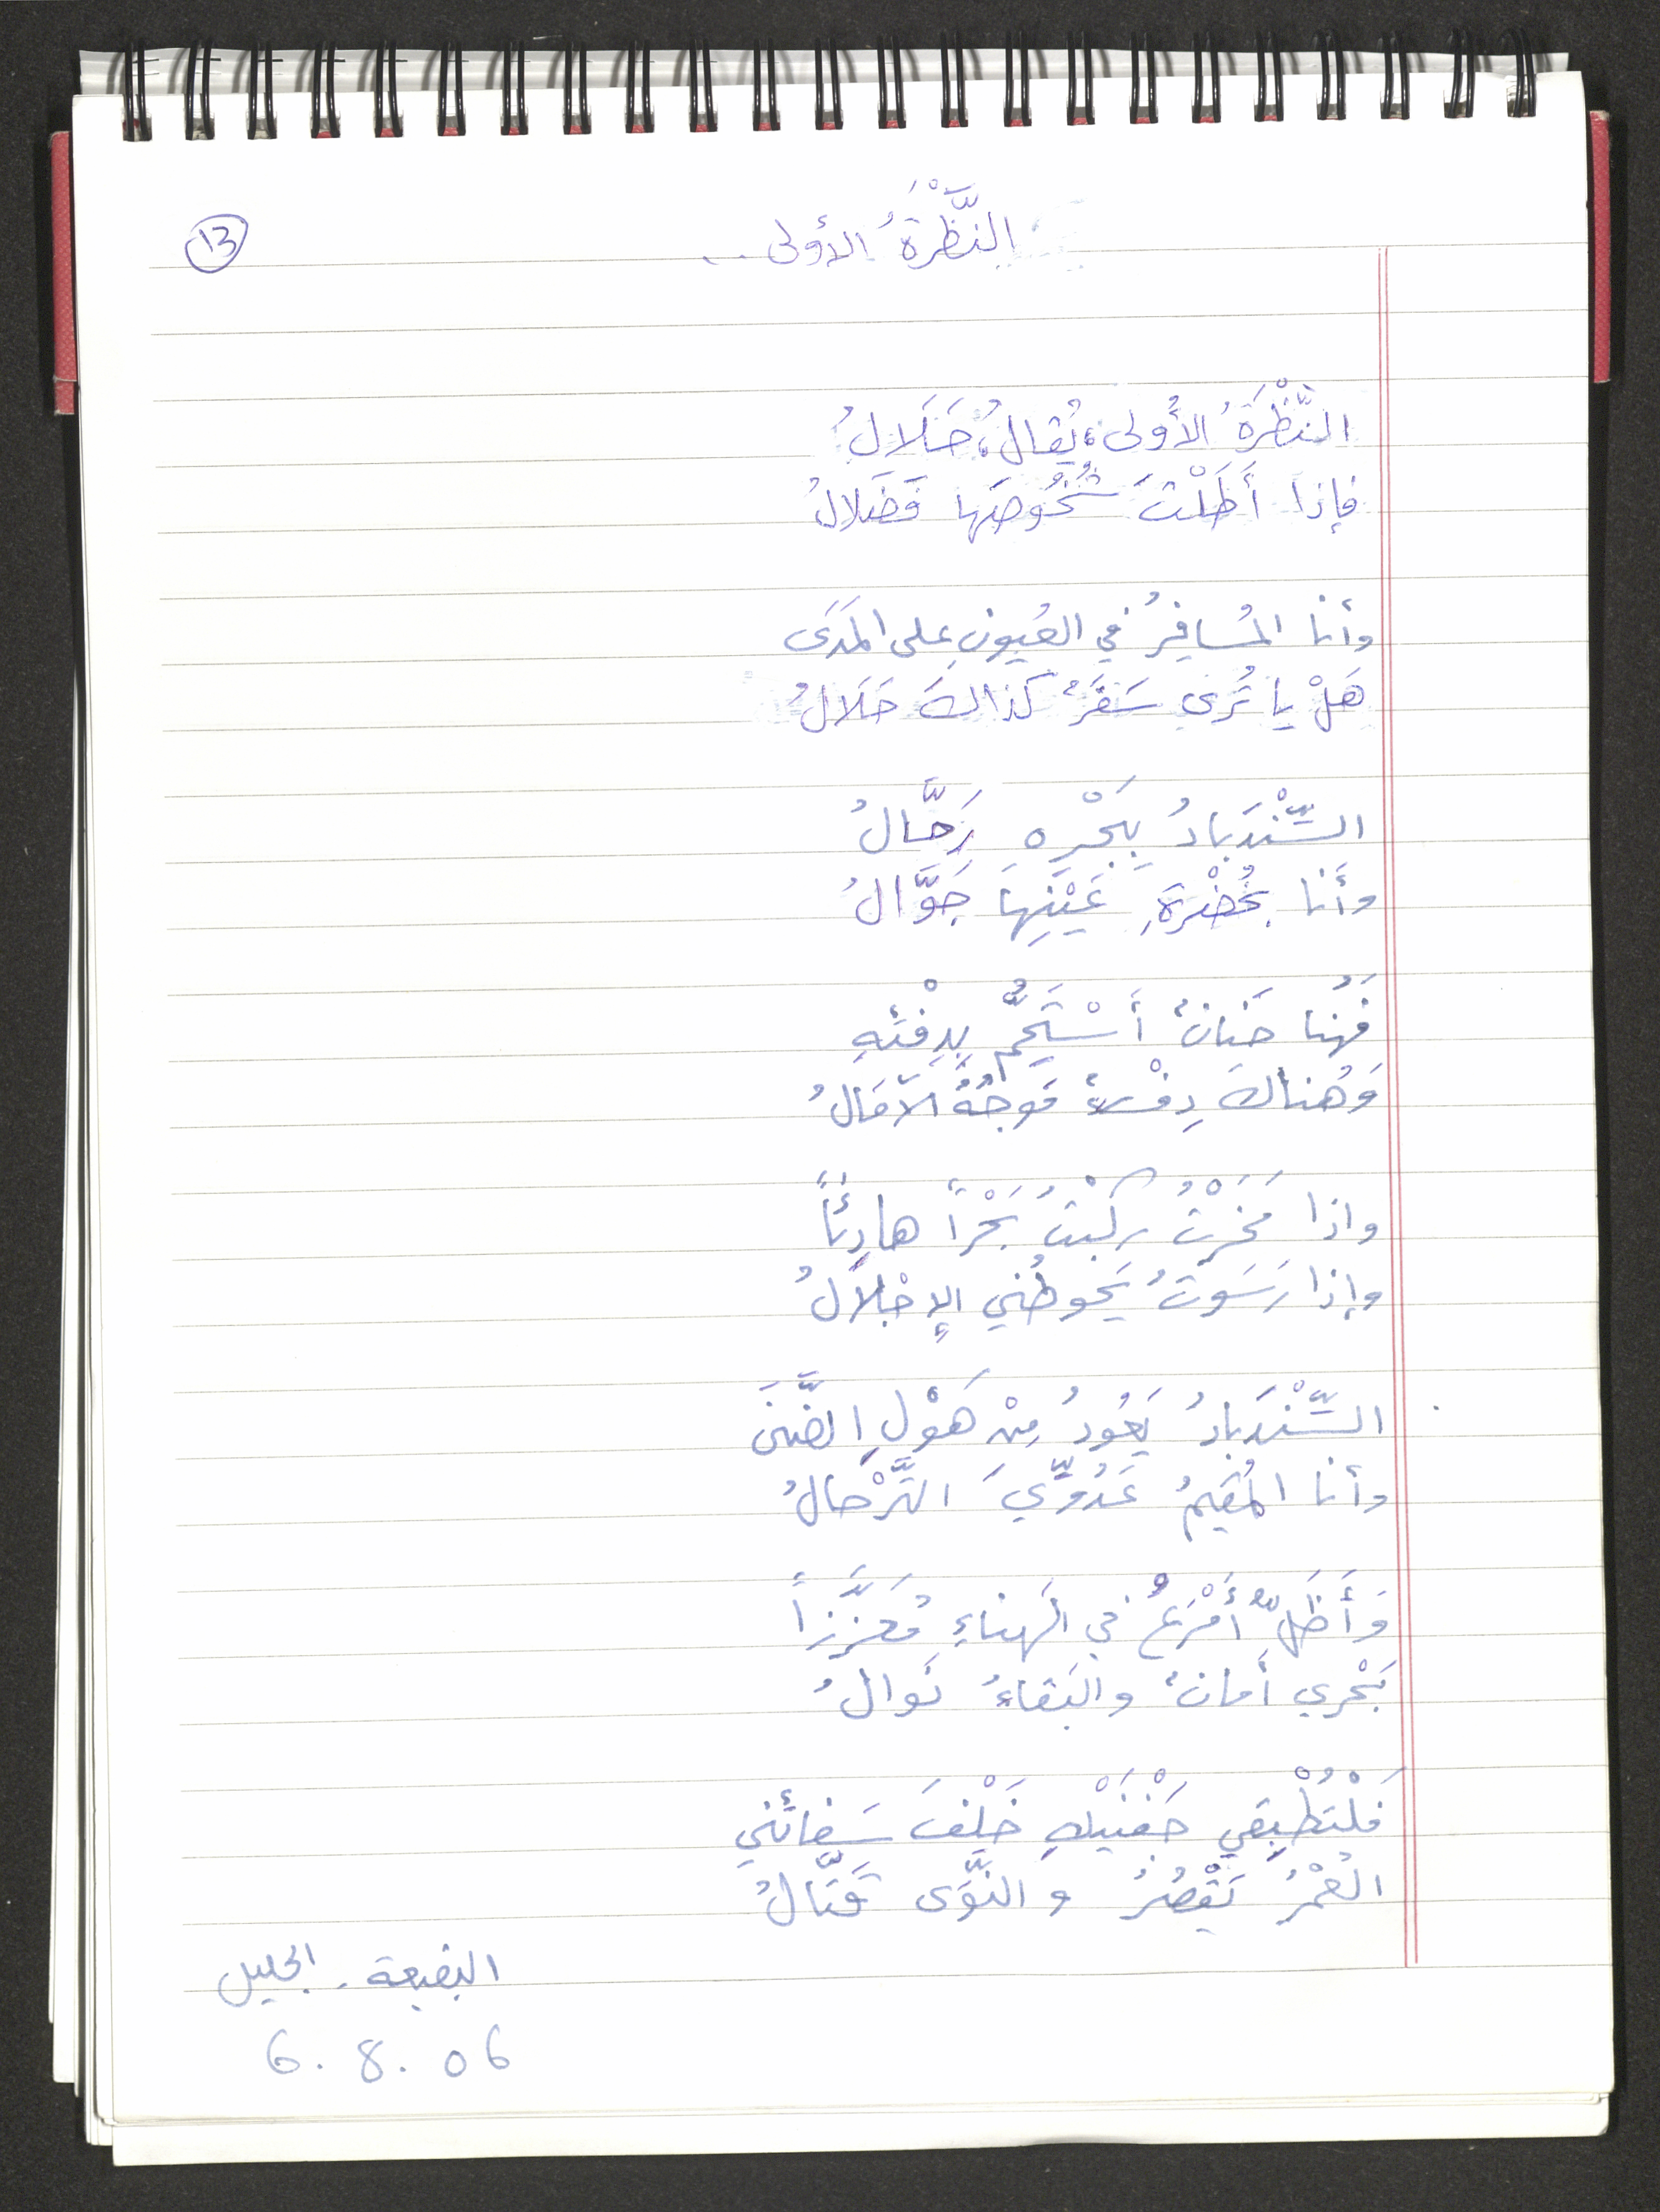 13
النَّظْرَةُ الأولى..
النَّظْرَةُ الأُولى، يُقالُ، حَلَالُ
فإذا أَطَلْتَ شُخُوصَها فَضَلالُ
وأنا المُسافِرُ في العُيونِ على المَدَى
هَلْ يا تُرى سَفَرٌ كذاكَ حَلَالُ
السِّنْدَبادُ بِبَحْرِهِ رَحَّالُ
وأَنا بخُضْرَةِ عَيْنِهَا جَوَّالُ
فَهُنا حَنانٌ أَسْتَحِمُّ بِدِفْئِهِ
وَهُناكَ دِفْءٌ مَوجُهُ الآمَالُ
واذا مَخَرْتُ ركبْتُ بَحْراً هادِئاً
وإذا رَسَوتُ يَحوطُني الإجْلالُ
السِّنْدَبادُ يَعُودُ مِنْ هَوْلِ الضَّنَى
وأنا المُقيمُ عَدُوِّيَ التَّرْحالُ
وَأَظَلُّ أَمْرَعُ في الهَناءِ مُعَزَّزاً
بَحْري أَمانٌ والبَقاءُ نَوالُ
فَلْتُطْبِقي جَفْنَيْكِ خَلْفَ سَفائني
العُمْرُ يَقْصُرُ والنَّوَى قَتَّالُ
البقيعة - الجليل
6.8.06